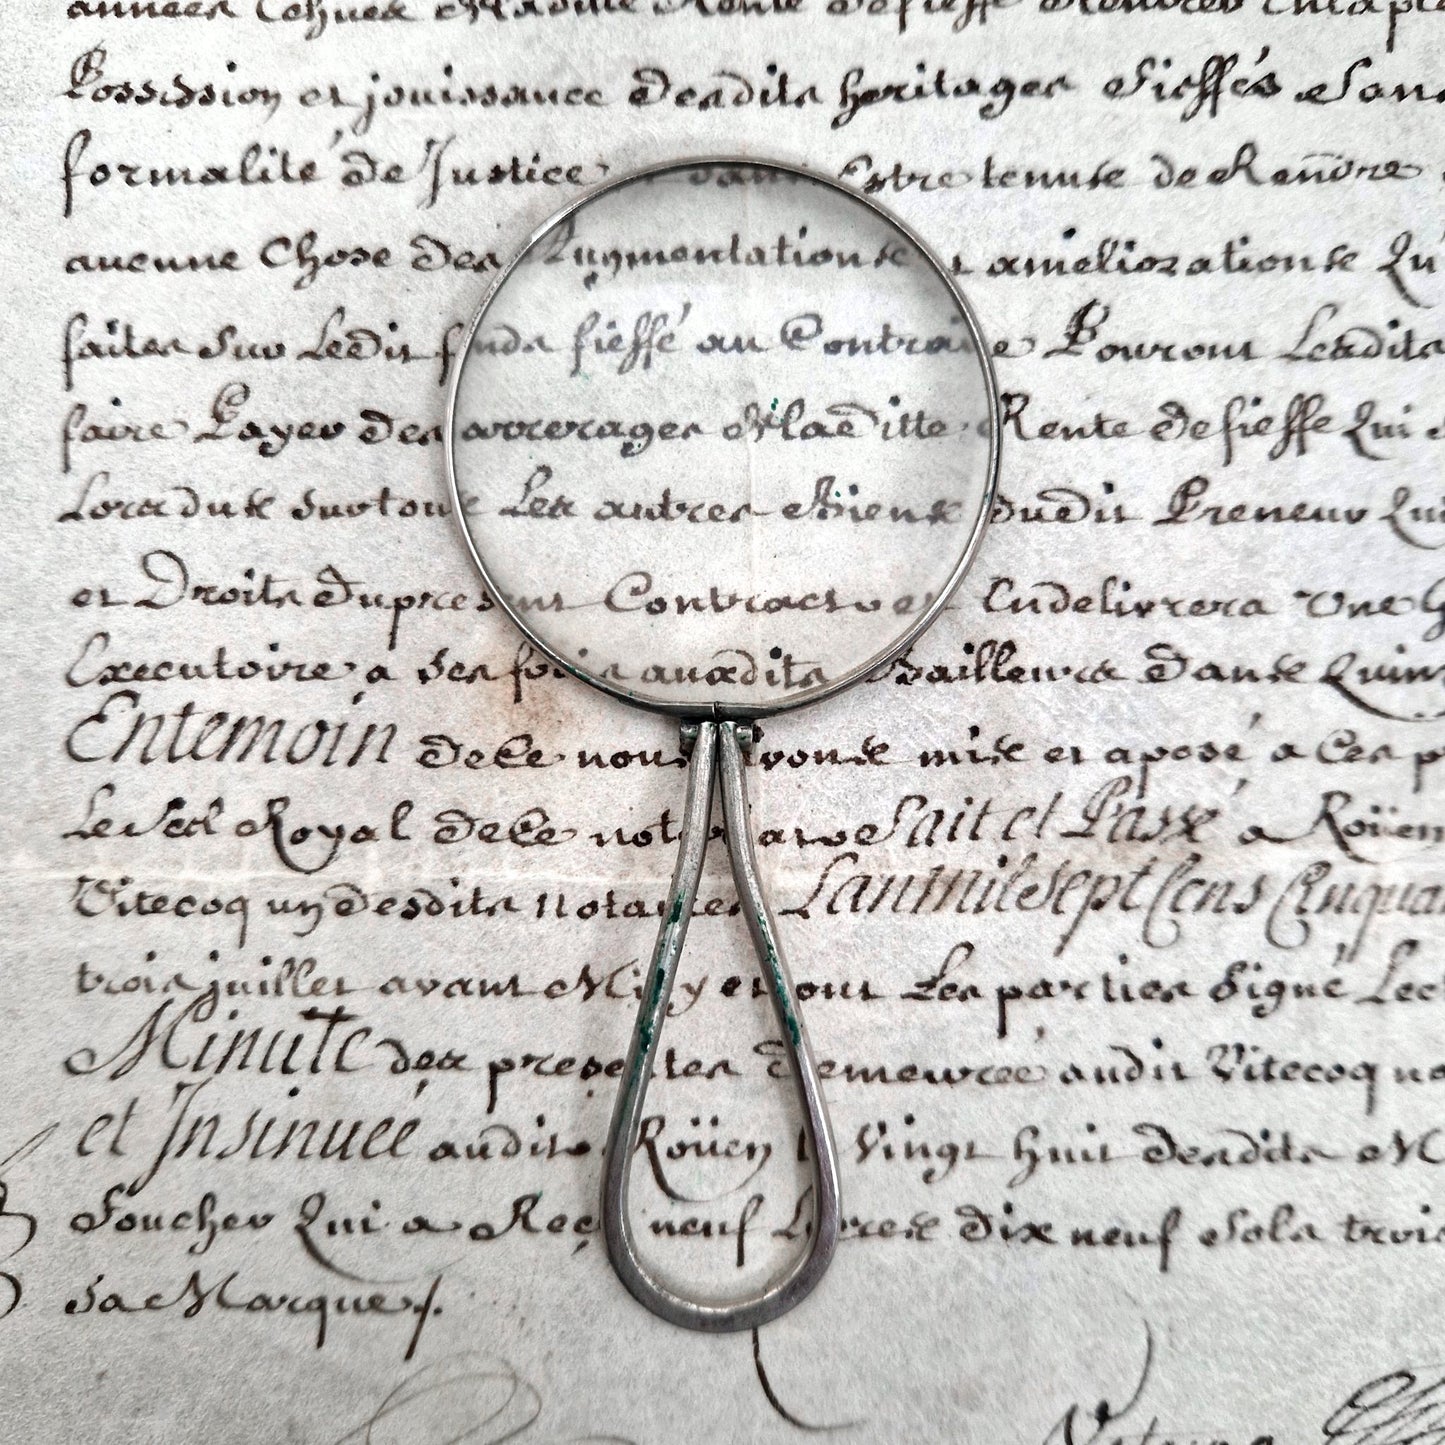 années Echues de Rente de fieffe
Possession et jouissance desdits heritages fieffés Sans
formalité de Justice et sans Estre tenuse de Rendre
aucune Chose des Augmentationse et ameliorationse Qu
faites sur Ledit fonds fieffé au Contraire Pouront Lesdits
faire Payer des arrerages de laditte Rente de fieffe Qui
sur tous Les autres Biense dudit Preneur Qui
et Droits du present Contract Endelivrera Une
Executoire a ses frois auxdits Bailleurs danse Quinz
Entemoin dece nous avonse mise et aposé a Ces p
Le Seel Royal dece notariat Fait et Passé a Roüen
Vitecoq un desdits notaires L'an mil Sept Cens Cinquan
trois juillet avant Midy et ont Les parties Signé Lec
Minute des presentes demeurée audit Vitecoq no
et Insinuée audit Roüen le Vingt huit desdits M
Foucher Qui a Reçu neuf Livrese dix neuf Sols trois
Sa Marque